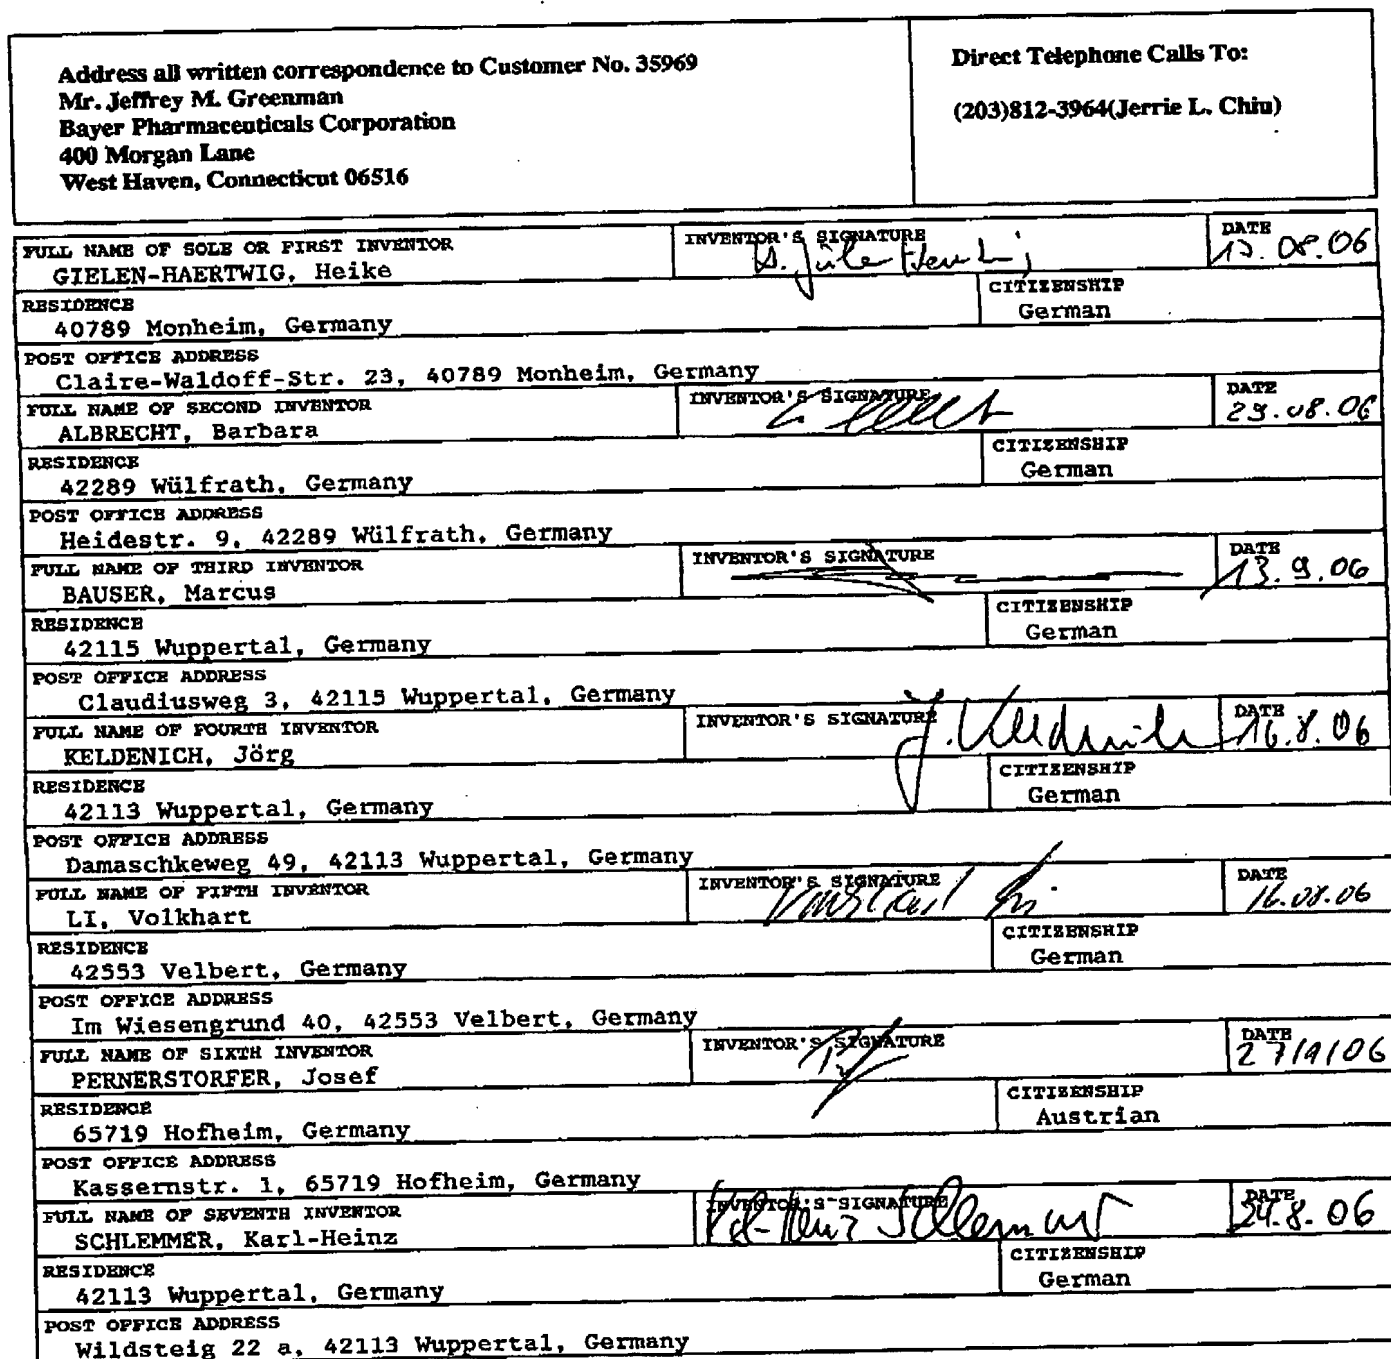 Address all written correspondence to Customer No. 35969
Mr. Jeffrey M. Greenman
Bayer Pharmaceuticals Corporation
400 Morgan Lane
West Haven, Connecticut 06516
Direct Telephone Calls To:
(203)812-3964(Jerrie L. Chiu)
FULL NAME OF SOLE OR FIRST INVENTOR
GIELEN-HAERTWIG, Heike
INVENTOR'S SIGNATURE
DATE
RESIDENCE
40789 Monheim, Germany
CITIZENSHIP
German
POST OFFICE ADDRESS
Claire-Waldoff-Str. 23, 40789 Monheim, Germany
FULL NAME OF SECOND INVENTOR
ALBRECHT, Barbara
INVENTOR'S SIGNATURE
DATE
29.08.06
RESIDENCE
42289 Wülfrath, Germany
CITIZENSHIP
German
POST OFFICE ADDRESS
Heidestr. 9, 42289 Wülfrath, Germany
FULL NAME OF THIRD INVENTOR
BAUSER, Marcus
INVENTOR'S SIGNATURE
DATE
13.9.06
RESIDENCE
42115 Wuppertal, Germany
CITIZENSHIP
German
POST OFFICE ADDRESS
Claudiusweg 3, 42115 Wuppertal, Germany
FULL NAME OF FOURTH INVENTOR
KELDENICH, Jörg
INVENTOR'S SIGNATURE
J. Keldenich
DATE
16.8.06
RESIDENCE
42113 Wuppertal, Germany
CITIZENSHIP
German
POST OFFICE ADDRESS
Damaschkeweg 49, 42113 Wuppertal, Germany
FULL NAME OF FIFTH INVENTOR
LI, Volkhart
INVENTOR'S SIGNATURE
Volkhart Li
DATE
16.08.06
RESIDENCE
42553 Velbert, Germany
CITIZENSHIP
German
POST OFFICE ADDRESS
Im Wiesengrund 40, 42553 Velbert, Germany
FULL NAME OF SIXTH INVENTOR
PERNERSTORFER, Josef
INVENTOR'S SIGNATURE
DATE
27/9/06
RESIDENCE
65719 Hofheim, Germany
CITIZENSHIP
Austrian
POST OFFICE ADDRESS
Kassernstr. 1, 65719 Hofheim, Germany
FULL NAME OF SEVENTH INVENTOR
SCHLEMMER, Karl-Heinz
INVENTOR'S SIGNATURE
Karl-Heinz Schlemmer
DATE
24.8.06
RESIDENCE
42113 Wuppertal, Germany
CITIZENSHIP
German
POST OFFICE ADDRESS
Wildsteig 22 a, 42113 Wuppertal, Germany